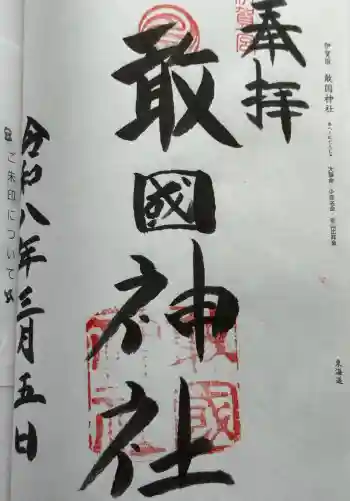 伊賀国 敢国神社
東海道
奉拝
敢國神社
令和八年三月五日
ご朱印について